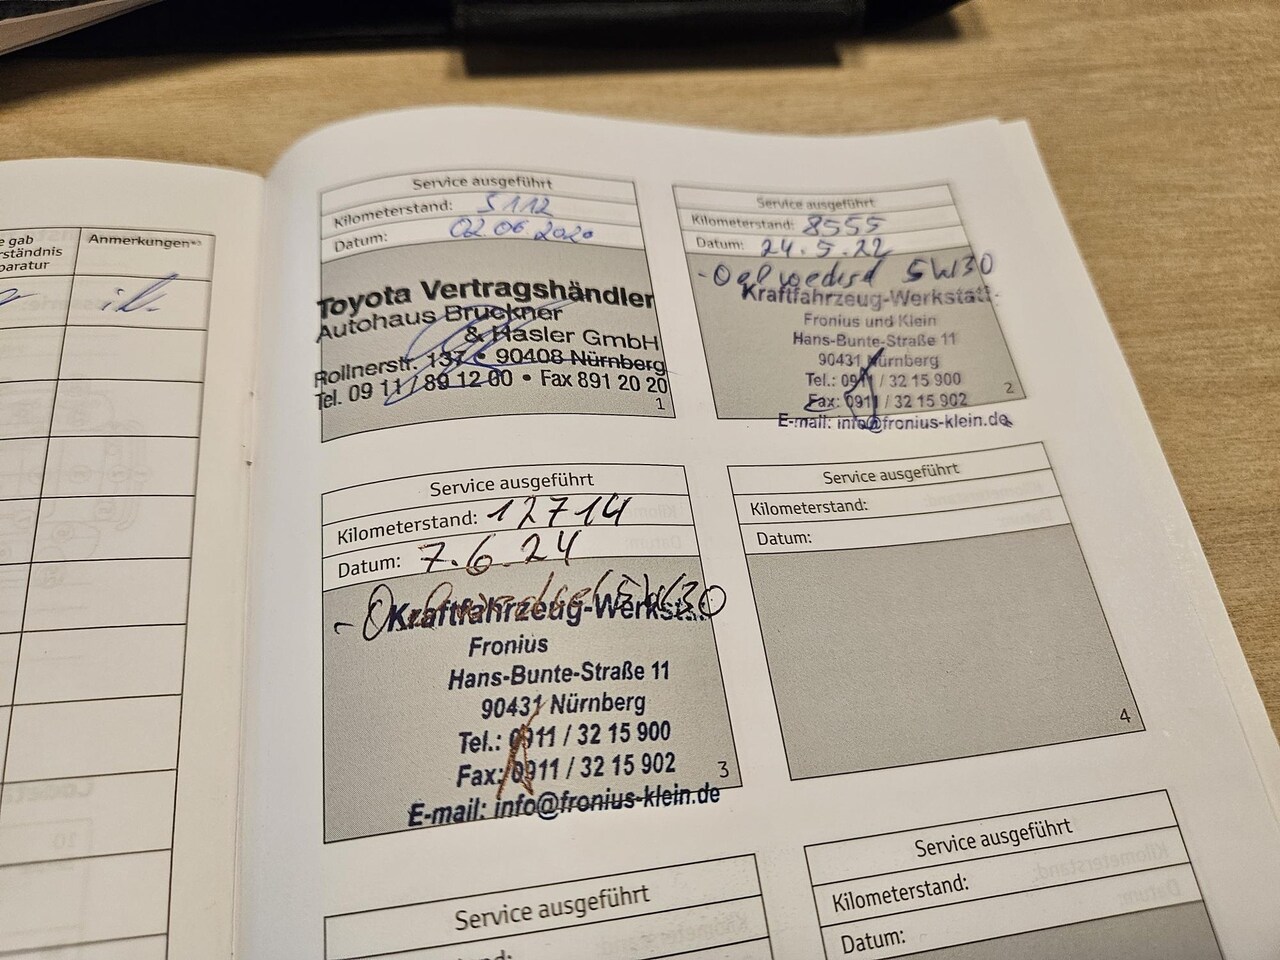 e gab
rständnis
paratur
Anmerkungen
Service ausgeführt
Kilometerstand: 5112
Datum: 02.06.2020
Toyota Vertragshändler
Autohaus Bruckner
& Hasler GmbH
Rollnerstr. 137 • 90408 Nürnberg
Tel. 09 11 / 89 12 00 • Fax 891 20 20
1
Service ausgeführt
Kilometerstand: 8555
Datum: 24.5.22
5W30
Kraftfahrzeug-Werkstatt
Fronius und Klein
Hans-Bunte-Straße 11
90431 Nürnberg
Tel.: 0911 / 32 15 900
Fax: 0911 / 32 15 902
E-mail: info@fronius-klein.de
2
Service ausgeführt
Kilometerstand: 12714
Datum: 7.6.24
5W30
Kraftfahrzeug-Werkst
Fronius
Hans-Bunte-Straße 11
90431 Nürnberg
Tel.: 0911 / 32 15 900
Fax: 0911 / 32 15 902
E-mail: info@fronius-klein.de
3
Service ausgeführt
Kilometerstand:
Datum:
4
Service ausgeführt
nd:
Service ausgeführt
Kilometerstand:
Datum: